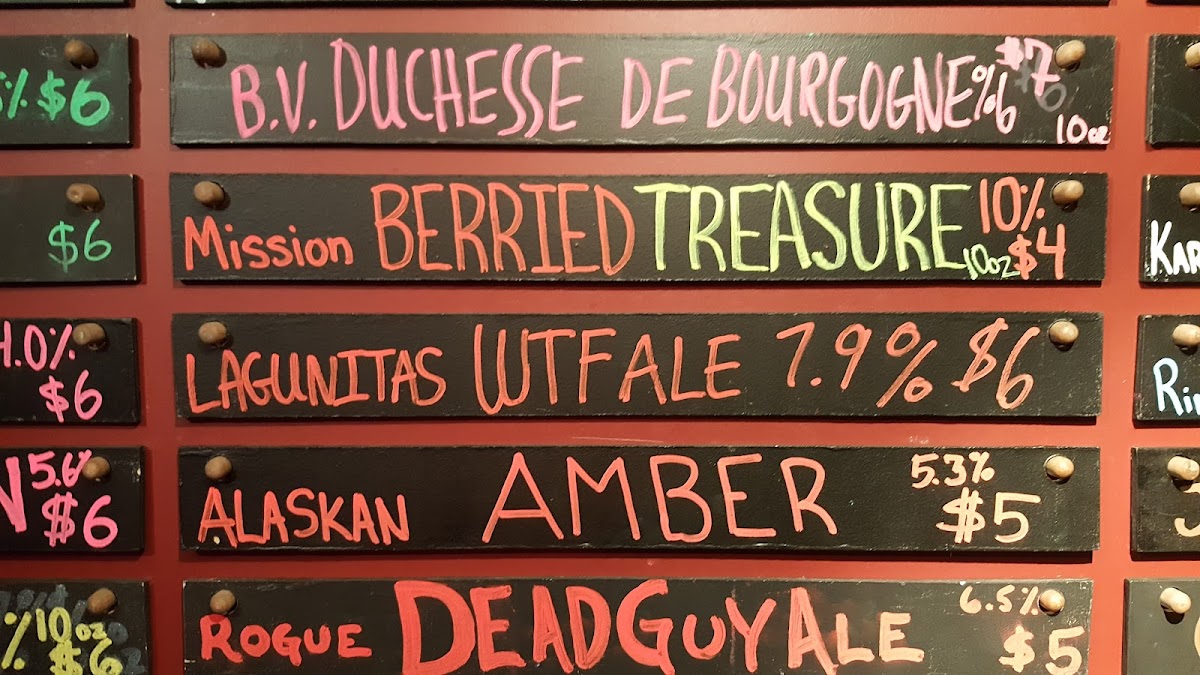 %$6
B.V. DUCHESSE DE BOURGOGNE %6 $7 10oz
$6
Mission BERRIED TREASURE 10% 10oz $4
KAR
4.0% $6
LAGUNITAS WTF ALE 7.9% $6
Ri
5.6% $6
ALASKAN AMBER 5.3% $5
% 10oz $6
ROGUE DEAD GUY ALE 6.5% $5